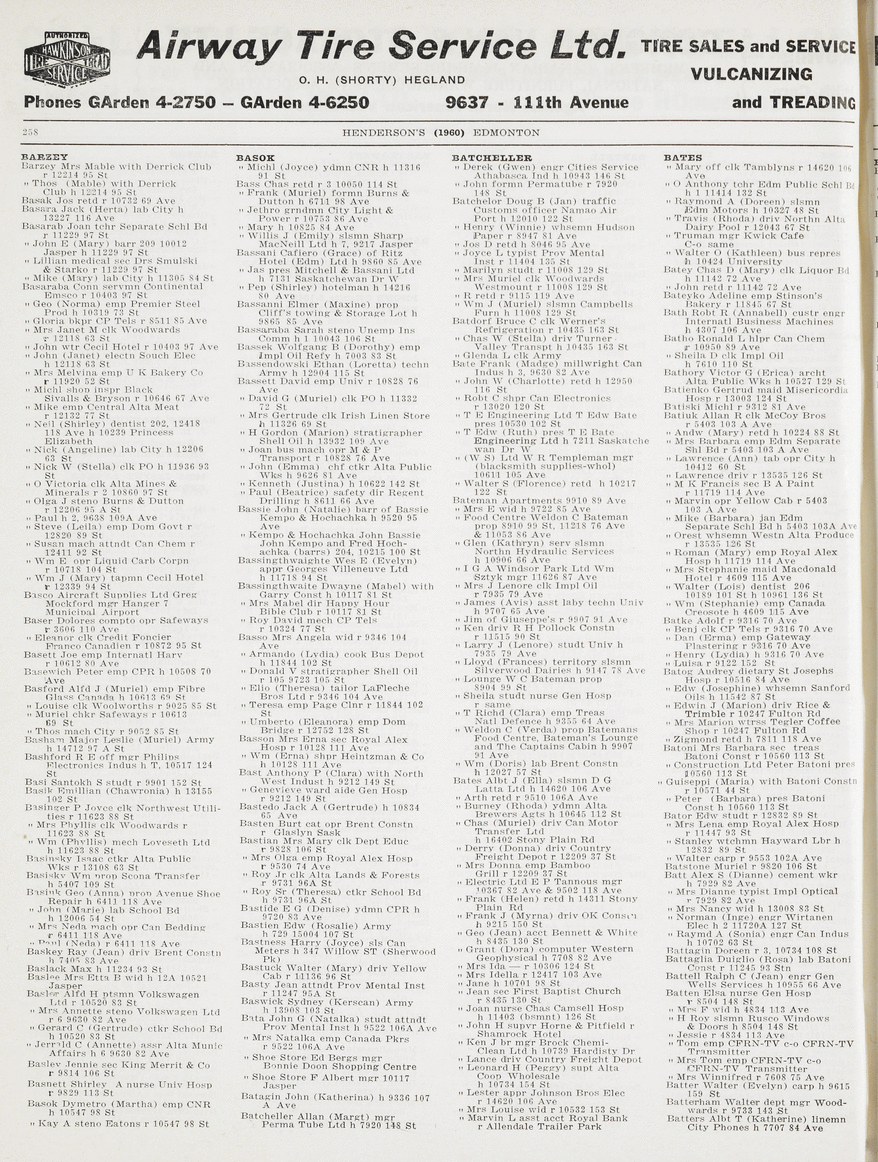 AUTHORIZED
HAWKINSON
TIRE TREAD
SERVICE
Airway Tire Service Ltd.
O. H. (SHORTY) HEGLAND
Phones GArden 4-2750 — GArden 4-6250
9637 - 111th Avenue
TIRE SALES and SERVICE
VULCANIZING
and TREADING
258
HENDERSON'S (1960) EDMONTON
BARZEY
Barzey Mrs Mable with Derrick Club
r 12214 95 St
" Thos (Mable) with Derrick
Club h 12214 95 St
Basak Jos retd r 10732 69 Ave
Basara Jack (Herta) lab City h
13227 116 Ave
Basarab Joan tchr Separate Schl Bd
r 11229 97 St
" John E (Mary) barr 209 10012
Jasper h 11229 97 St
" Lillian medical sec Drs Smulski
& Starko r 11229 97 St
" Mike (Mary) lab City h 11305 84 St
Basaraba Conn servmn Continental
Emsco r 10403 97 St
" Geo (Norma) emp Premier Steel
Prod h 10319 73 St
" Gloria bkpr CP Tels r 8511 85 Ave
" Mrs Janet M clk Woodwards
r 12118 63 St
" John wtr Cecil Hotel r 10403 97 Ave
" John (Janet) electn Souch Elec
h 12118 63 St
" Mrs Melvina emp U K Bakery Co
r 11920 52 St
" Michl shop inspr Black
Sivalls & Bryson r 10646 67 Ave
" Mike emp Central Alta Meat
r 12132 77 St
" Neil (Shirley) dentist 202, 12418
118 Ave h 10239 Princess
Elizabeth
" Nick (Angeline) lab City h 12206
63 St
" Nick W (Stella) clk PO h 11936 93
St
" O Victoria clk Alta Mines &
Minerals r 2 10860 97 St
" Olga J steno Burns & Dutton
r 12206 95 A St
" Paul h 2, 9638 109A Ave
" Steve (Leila) emp Dom Govt r
12820 89 St
" Susan mach attndt Can Chem r
12411 92 St
" Wm E opr Liquid Carb Corpn
r 10718 104 St
" Wm J (Mary) tapmn Cecil Hotel
r 12339 94 St
Basco Aircraft Supplies Ltd Greg
Mockford mgr Hanger 7
Municipal Airport
Baser Dolores compto opr Safeways
r 3606 110 Ave
" Eleanor clk Credit Foncier
Franco Canadien r 10872 95 St
Basett Joe emp Internatl Harv
r 10612 80 Ave
Basewich Peter emp CPR h 10508 70
Ave
Basford Alfd J (Muriel) emp Fibre
Glass Canada h 10613 69 St
" Louise clk Woolworths r 9025 85 St
" Muriel chkr Safeways r 10613
69 St
" Thos mach City r 9052 85 St
Basham Major Leslie (Muriel) Army
h 14712 97 A St
Bashford R E off mgr Philips
Electronics Indus h T, 10517 124
St
Basi Santokh S studt r 9901 152 St
Basik Emillian (Chawronia) h 13155
102 St
Basinger P Joyce clk Northwest Utili-
ties r 11623 88 St
" Mrs Phyllis clk Woodwards r
11623 88 St
" Wm (Phyllis) mech Loveseth Ltd
h 11623 88 St
Basinsky Isaac ctkr Alta Public
Wks r 13108 63 St
Basisky Wm prop Scona Transfer
h 5407 109 St
Basiuk Geo (Anna) prop Avenue Shoe
Repair h 6411 118 Ave
" John (Marie) lab School Bd
h 12006 54 St
" Mrs Neda mach opr Can Bedding
r 6411 118 Ave
" Paul (Neda) r 6411 118 Ave
Baskey Ray (Jean) driv Brent Constn
h 7405 83 Ave
Baslack Max h 11234 93 St
Baslee Mrs Etta B wid h 12A 10521
Jasper
Baslee Alfd H ptsmn Volkswagen
Ltd r 10520 83 St
" Mrs Annette steno Volkswagen Ltd
r 6 9630 82 Ave
" Gerard C (Gertrude) ctkr School Bd
h 10520 83 St
" Jerrold C (Annette) assr Alta Munic
Affairs h 6 9630 82 Ave
Baslev Jennie sec King Merrit & Co
r 9814 106 St
Basnett Shirley A nurse Univ Hosp
r 9829 113 St
Basok Dymetro (Martha) emp CNR
h 10547 98 St
" Kay A steno Eatons r 10547 98 St
BASOK
" Michl (Joyce) ydmn CNR h 11316
91 St
Bass Chas retd r 3 10050 114 St
" Frank (Muriel) formn Burns &
Dutton h 6711 98 Ave
" Jethro grndmn City Light &
Power r 10753 86 Ave
" Mary h 10825 84 Ave
" Willis J (Emily) slsmn Sharp
MacNeill Ltd h 7, 9217 Jasper
Bassani Cafiero (Grace) of Ritz
Hotel (Edm) Ltd h 9860 85 Ave
" Jas pres Mitchell & Bassani Ltd
h 7131 Saskatchewan Dr W
" Pep (Shirley) hotelman h 14216
80 Ave
Bassanni Elmer (Maxine) prop
Cliff's towing & Storage Lot h
9865 85 Ave
Bassaraba Sarah steno Unemp Ins
Comm h 1 10043 106 St
Bassek Wolfgang B (Dorothy) emp
Impl Oil Refy h 7003 83 St
Bassendowski Ethan (Loretta) techn
Army h 12904 115 St
Bassett David emp Univ r 10828 76
Ave
" David G (Muriel) clk PO h 11332
72 St
" Mrs Gertrude clk Irish Linen Store
h 11326 69 St
" H Gordon (Marion) stratigrapher
Shell Oil h 13932 109 Ave
" Joan bus mach opr M & P
Transport r 10828 76 Ave
" John (Emma) chf ctkr Alta Public
Wks h 9626 81 Ave
" Kenneth (Justina) h 10622 142 St
" Paul (Beatrice) safety dir Regent
Drilling h 8611 66 Ave
Bassie John (Natalie) barr of Bassie
Kempo & Hochachka h 9520 95
Ave
" Kempo & Hochachka John Bassie
John Kempo and Fred Hoch-
achka (barrs) 204, 10215 100 St
Bassingthwaighte Wes E (Evelyn)
appr Georges Villeneuve Ltd
h 11718 94 St
Bassingthwaite Dwayne (Mabel) with
Garry Const h 10117 81 St
" Mrs Mabel dir Happy Hour
Bible Club r 10117 81 St
" Roy David mech CP Tels
r 10324 77 St
Basso Mrs Angela wid r 9346 104
Ave
" Armando (Lydia) cook Bus Depot
h 11844 102 St
" Donald V stratigrapher Shell Oil
r 105 9723 105 St
" Elio (Theresa) tailor LaFleche
Bros Ltd r 9346 104 Ave
" Teresa emp Page Clnr r 11844 102
St
" Umberto (Eleanora) emp Dom
Bridge r 12752 128 St
Basson Mrs Erna sec Royal Alex
Hosp r 10128 111 Ave
" Wm (Erna) shpr Heintzman & Co
h 10128 111 Ave
Bast Anthony P (Clara) with North
West Indust h 9212 149 St
" Genevieve ward aide Gen Hosp
r 9212 149 St
Bastedo Jack A (Gertrude) h 10834
65 Ave
Basten Burt cat opr Brent Constn
r Glaslyn Sask
Bastian Mrs Mary clk Dept Educ
r 9828 106 St
" Mrs Olga emp Royal Alex Hosp
r 9530 74 Ave
" Roy Jr clk Alta Lands & Forests
r 9731 96A St
" Roy Sr (Theresa) ctkr School Bd
h 9731 96A St
Bastide E G (Denise) ydmn CPR h
9720 83 Ave
Bastien Edw (Rosalie) Army
h 729 15004 107 St
Bastness Harry (Joyce) sls Can
Meters h 347 Willow ST (Sherwood
Pk)
Bastuck Walter (Mary) driv Yellow
Cab r 11136 96 St
Basty Jean attndt Prov Mental Inst
r 11247 95A St
Baswick Sydney (Kerscan) Army
h 13908 103 St
Bata John G (Natalka) studt attndt
Prov Mental Inst h 9522 106A Ave
" Mrs Natalka emp Canada Pkrs
r 9522 106A Ave
" Shoe Store Ed Bergs mgr
Bonnie Doon Shopping Centre
" Shoe Store F Albert mgr 10117
Jasper
Batagin John (Katherina) h 9336 107
A Ave
Batcheller Allan (Margt) mgr
Perma Tube Ltd h 7920 148 St
BATCHELLER
" Derek (Gwen) engr Cities Service
Athabasca Ind h 10943 146 St
" John formn Permatube r 7920
148 St
Batchelor Doug B (Jan) traffic
Customs officer Namao Air
Port h 12010 122 St
" Henry (Winnie) whsemn Hudson
Paper r 8947 81 Ave
" Jos D retd h 8046 95 Ave
" Joyce L typist Prov Mental
Inst r 11404 135 St
" Marilyn studt r 11008 129 St
" Mrs Muriel clk Woodwards
Westmount r 11008 129 St
" R retd r 9115 119 Ave
" Wm J (Muriel) slsmn Campbells
Furn h 11008 129 St
Batdorf Bruce C clk Werner's
Refrigeration r 10435 163 St
" Chas W (Stella) driv Turner
Valley Transpt h 10435 163 St
" Glenda L clk Army
Bate Frank (Madge) millwright Can
Indus h 3, 9630 82 Ave
" John W (Charlotte) retd h 12950
116 St
" Robt C shpr Can Electronics
r 13020 120 St
" T E Engineering Ltd T Edw Bate
pres 10530 102 St
" T Edw (Ruth) pres T E Bate
Engineering Ltd h 7211 Saskatche
wan Dr W
" (W S) Ltd W R Templeman mgr
(blacksmith supplies-whol)
10611 105 Ave
" Walter S (Florence) retd h 10217
122 St
Bateman Apartments 9910 89 Ave
" Mrs E wid h 9722 85 Ave
" Food Centre Weldon C Bateman
prop 8910 99 St, 11218 76 Ave
& 11053 86 Ave
" Glen (Kathryn) serv slsmn
Northn Hydraulic Services
h 10906 66 Ave
" I G A Windsor Park Ltd Wm
Sztyk mgr 11626 87 Ave
" Mrs J Lenore clk Impl Oil
r 7935 79 Ave
" James (Avis) asst laby techn Univ
h 9707 65 Ave
" Jim of Giuseppe's r 9907 91 Ave
" Ken driv R H Pollock Constn
r 11515 90 St
" Larry J (Lenore) studt Univ h
7935 79 Ave
" Lloyd (Frances) territory slsmn
Silverwood Dairies h 9147 78 Ave
" Lounge W C Bateman prop
8904 99 St
" Sheila studt nurse Gen Hosp
r same
" T Richd (Clara) emp Treas
Natl Defence h 9355 64 Ave
" Weldon C (Verda) prop Batemans
Food Centre, Bateman's Lounge
and The Captains Cabin h 9907
91 Ave
" Wm (Doris) lab Brent Constn
h 12027 57 St
Bates Albt J (Ella) slsmn D G
Latta Ltd h 14620 106 Ave
" Arth retd r 9510 106A Ave
" Burney (Rhoda) ydmn Alta
Brewers Agts h 10645 112 St
" Chas (Muriel) driv Can Motor
Transfer Ltd
h 16402 Stony Plain Rd
" Derry (Donna) driv Country
Freight Depot r 12209 37 St
" Mrs Donna emp Bamboo
Grill r 12209 37 St
" Electric Ltd E P Tannous mgr
10367 82 Ave & 9502 118 Ave
" Frank (Helen) retd h 14311 Stony
Plain Rd
" Frank J (Myrna) driv OK Constn
h 9215 150 St
" Geo (Jean) acct Bennett & White
h 8435 130 St
" Grant (Dora) computer Western
Geophysical h 7708 82 Ave
" Mrs Ida — r 10306 124 St
" Mrs Idella r 12417 103 Ave
" Jane h 10701 98 St
" Jean sec First Baptist Church
r 8435 130 St
" Joan nurse Chas Camsell Hosp
h 11403 (bsmnt) 126 St
" John H supvr Horne & Pitfield r
Shamrock Hotel
" Ken J br mgr Brock Chemi-
Clean Ltd h 10739 Hardisty Dr
" Lance driv Country Freight Depot
" Leonard H (Peggy) supt Alta
Coop Wholesale
h 10734 154 St
" Lester appr Johnson Bros Elec
r 14620 106 Ave
" Mrs Louise wid r 10532 153 St
" Marvin L asst acct Royal Bank
r Allendale Trailer Park
BATES
" Mary off clk Tamblyns r 14620 106
Ave
" O Anthony tchr Edm Public Schl Bd
h 11414 132 St
" Raymond A (Doreen) slsmn
Edm Motors h 10327 48 St
" Travis (Rhoda) driv Northn Alta
Dairy Pool r 12043 67 St
" Truman mgr Kwick Cafe
C-o same
" Walter O (Kathleen) bus repres
h 10424 University
Batey Chas D (Mary) clk Liquor Bd
h 11142 72 Ave
" John retd r 11142 72 Ave
Bateyko Adeline emp Stinson's
Bakery r 11845 67 St
Bath Robt R (Annabell) custr engr
Internatl Business Machines
h 4307 106 Ave
Batho Ronald L hlpr Can Chem
r 10950 89 Ave
" Sheila D clk Impl Oil
h 7610 110 St
Bathory Victor G (Erica) archt
Alta Public Wks h 10527 129 St
Batienko Gertrud maid Misericordia
Hosp r 13003 124 St
Batiski Michl r 9312 81 Ave
Batiuk Allan R clk McCoy Bros
r 5403 103 A Ave
" Andw (Mary) retd h 10224 88 St
" Mrs Barbara emp Edm Separate
Shl Bd r 5403 103 A Ave
" Lawrence (Ann) tab opr City h
10412 60 St
" Lawrence driv r 13535 126 St
" M K Francis sec B A Paint
r 11719 114 Ave
" Marvin opr Yellow Cab r 5403
103 A Ave
" Mike (Barbara) jan Edm
Separate Schl Bd h 5403 103A Ave
" Orest whsemn Westn Alta Produce
r 13535 126 St
" Roman (Mary) emp Royal Alex
Hosp h 11719 114 Ave
" Mrs Stephanie maid Macdonald
Hotel r 4609 115 Ave
" Walter (Lois) dentist 206
10189 101 St h 10961 136 St
" Wm (Stephanie) emp Canada
Creosote h 4609 115 Ave
Batke Adolf r 9316 70 Ave
" Benj clk CP Tels r 9316 70 Ave
" Dan (Erma) emp Gateway
Plastering r 9316 70 Ave
" Henry (Lydia) h 9316 70 Ave
" Luisa r 9122 152 St
Batog Audrey dietary St Josephs
Hosp r 10516 84 Ave
" Edw (Josephine) whsemn Sanford
Oils h 11542 87 St
" Edwin J (Marion) driv Rice &
Trimble r 10247 Fulton Rd
" Mrs Marion wtrss Tegler Coffee
Shop r 10247 Fulton Rd
" Zigmond retd h 7811 118 Ave
Batoni Mrs Barbara sec treas
Batoni Const r 10560 113 St
" Construction Ltd Peter Batoni pres
10560 113 St
" Guiseppi (Maria) with Batoni Constn
r 10571 44 St
" Peter (Barbara) pres Batoni
Const h 10560 113 St
Bator Edw studt r 12832 89 St
" Mrs Lena emp Royal Alex Hosp
r 11447 93 St
" Stanley wtchmn Hayward Lbr h
12832 89 St
" Walter carp r 9553 102A Ave
Batstone Muriel r 9820 106 St
Batt Alex S (Dianne) cement wkr
h 7929 82 Ave
" Mrs Dianne typist Impl Optical
r 7929 82 Ave
" Mrs Nancy wid h 13008 83 St
" Norman (Inge) engr Wirtanen
Elec h 2 11720A 127 St
" Raymd A (Sonia) engr Can Indus
h 10702 63 St
Battagin Doreen r 3, 10734 108 St
Battaglia Duiglio (Rosa) lab Batoni
Const r 11245 93 Stn
Battell Ralph C (Jean) engr Gen
Wells Services h 10955 66 Ave
Batten Elsa nurse Gen Hosp
r 8504 148 St
" Mrs F wid h 4834 113 Ave
" H Roy slsmn Rusco Windows
& Doors h 8504 148 St
" Jessie r 4834 113 Ave
" Tom emp CFRN-TV c-o CFRN-TV
Transmitter
" Mrs Tom emp CFRN-TV c-o
CFRN-TV Transmitter
" Mrs Winnifred r 7608 75 Ave
Batter Walter (Evelyn) carp h 9615
159 St
Batterham Walter dept mgr Wood-
wards r 9733 143 St
Batters Albt T (Katherine) linemn
City Phones h 7707 84 Ave